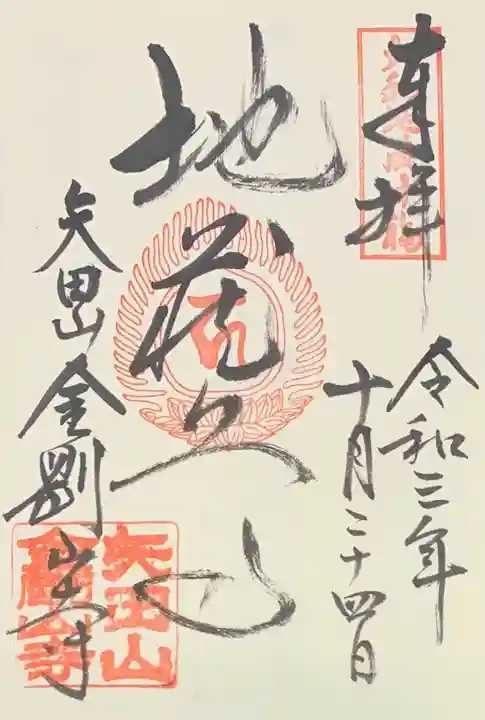 奉拝
令和三年
十月二十四日
地蔵
矢田山金剛山寺
矢田山
金剛山寺